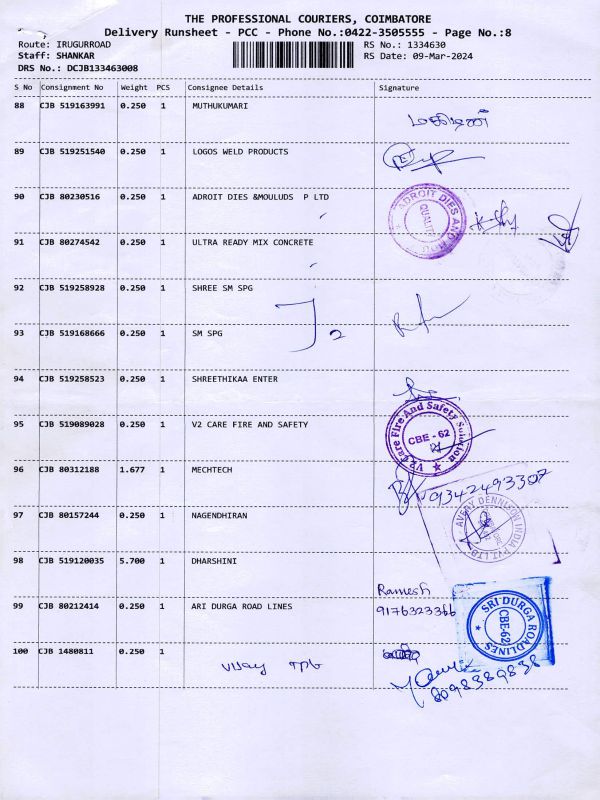 THE PROFESSIONAL COURIERS, COIMBATORE
Delivery Runsheet - PCC - Phone No.:0422-3505555 - Page No.:8
Route: IRUGURROAD RS No.: 1334630
Staff: SHANKAR RS Date: 09-Mar-2024
DRS No.: DCJB133463008
S No Consignment No Weight PCS Consignee Details Signature
88 CJB 519163991 0.250 1 MUTHUKUMARI
89 CJB 519251540 0.250 1 LOGOS WELD PRODUCTS
90 CJB 80230516 0.250 1 ADROIT DIES &MOULUDS P LTD
ADROIT DIES AND
QUALITY
91 CJB 80274542 0.250 1 ULTRA READY MIX CONCRETE
92 CJB 519258928 0.250 1 SHREE SM SPG
2
93 CJB 519168666 0.250 1 SM SPG
94 CJB 519258523 0.250 1 SHREETHIKAA ENTER
95 CJB 519089028 0.250 1 V2 CARE FIRE AND SAFETY
V2 Care Fire And Safety Solution
CBE - 62
96 CJB 80312188 1.677 1 MECHTECH
9342493307
97 CJB 80157244 0.250 1 NAGENDHIRAN
AVERY DENNISON INDIA PVT LTD
98 CJB 519120035 5.700 1 DHARSHINI
Ramesh
99 CJB 80212414 0.250 1 ARI DURGA ROAD LINES 9176323366
SRI DURGA ROADLINES
CBE-62
100 CJB 1480811 0.250 1
Vijay TPT
8098389838